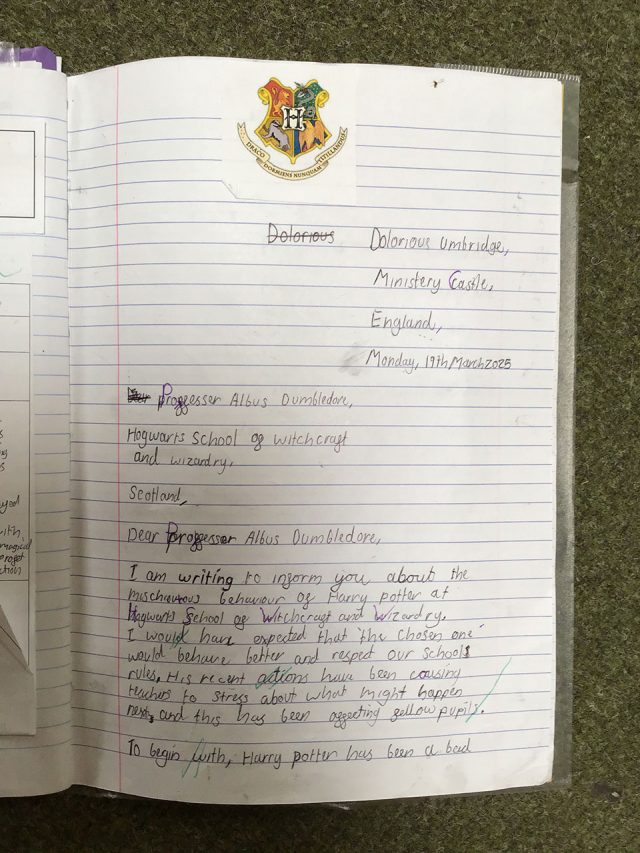 H
DRACO DORMIENS NUNQUAM TITILLANDUS
Dolorious Dolorious Umbridge,
Ministery Castle,
England,
Monday, 19th March 2025
Dear Proffesser Albus Dumbledore,
Hogwarts School of witchcraft
and wizardry,
Scotland,
Dear Proffesser Albus Dumbledore,
I am writing to inform you about the
mischievous behaviour of Harry potter at
Hogwarts School of Witchcraft and Wizardry.
I would have expected that 'the chosen one'
would behave better and respect our schools
rules. His recent actions have been causing
teachers to stress about what might happen
next, and this has been affecting fellow pupils.
To begin with, Harry potter has been a bad